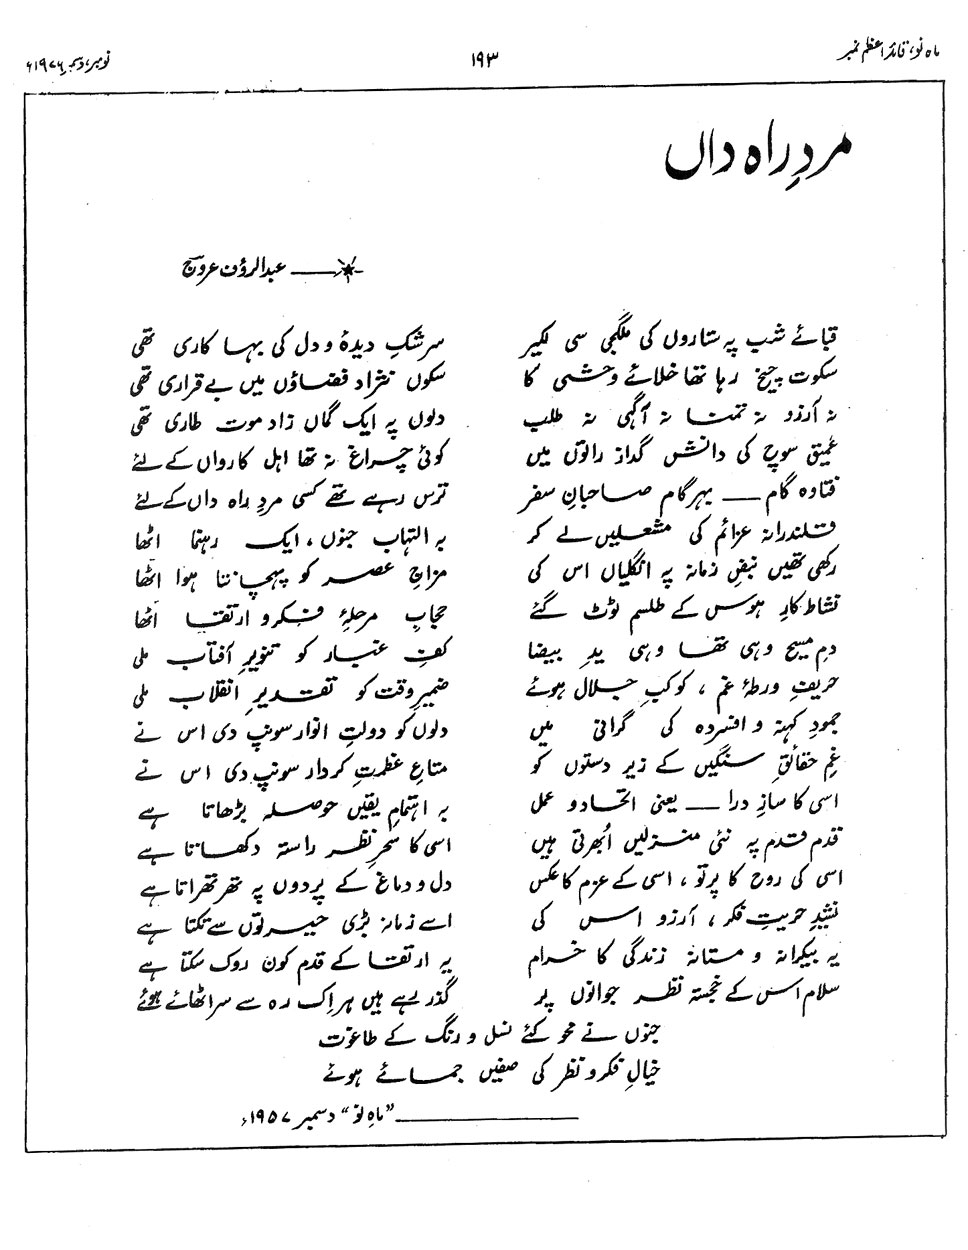 ماہ نو، قائد اعظم نمبر
۱۹۳
نومبر، دسمبر ۱۹۷۶ء
مردِ راہ داں
عبدالرؤف عروج
قبائے شب پہ ستاروں کی ملگجی سی لکیر
سرشکِ دیدۂ و دل کی بہا کاری تھی
سکوت چیخ رہا تھا خلائے وحشی کا
سکوں نژاد فضاؤں میں بے قراری تھی
نہ آرزو نہ تمنا نہ آگہی نہ طلب
دلوں پہ ایک گماں زاد موت طاری تھی
عمیق سوچ کی دانش گداز راتوں میں
کوئی چراغ نہ تھا اہل کارواں کے لئے
فتادہ گام — بہرگام صاحبانِ سفر
ترس رہے تھے کسی مردِ راہ داں کے لئے
قلندرانہ عزائم کی مشعلیں لے کر
بہ التہاب جنوں، ایک رہنما اٹھا
رکھی تھیں نبضِ زمانہ پہ انگلیاں اس کی
مزاجِ عصر کو پہچانتا ہوا اٹھا
نشاط کارِ ہوس کے طلسم ٹوٹ گئے
حجابِ مرحلۂ فکر و ارتقا اٹھا
دمِ مسیح وہی تھا وہی یدِ بیضا
کفِ غبار کو تنویرِ آفتاب ملی
حریفِ ورطۂ غم، کوکبِ جلال ہوئے
ضمیرِ وقت کو تقدیرِ انقلاب ملی
جمودِ کہنہ و افسردہ کی گرانی میں
دلوں کو دولتِ انوار سونپ دی اس نے
غمِ حقائقِ سنگیں کے زیر دستوں کو
متاعِ عظمتِ کردار سونپ دی اس نے
اسی کا سازِ درا — یعنی اتحاد و عمل
بہ اہتمامِ یقیں حوصلہ بڑھاتا ہے
قدم قدم پہ نئی منزلیں اُبھرتی ہیں
اسی کا سحرِ نظر راستہ دکھاتا ہے
اسی کی روح کا پرتو، اسی کے عزم کا عکس
دل و دماغ کے پردوں پہ تھرتھراتا ہے
نشیدِ حریتِ فکر، آرزو اس کی
اسے زمانہ بڑی حیرتوں سے تکتا ہے
یہ بیکرانہ و مستانہ زندگی کا خرام
یہ ارتقا کے قدم کون روک سکتا ہے
سلام اس کے خجستہ نظر جوانوں پر
گذر رہے ہیں ہر اِک رہ سے سر اٹھائے ہوئے
جنوں نے محو کئے نسل و رنگ کے طاغوت
خیالِ فکر و نظر کی صفیں جمائے ہوئے
"ماہِ نو" دسمبر ۱۹۵۷ء